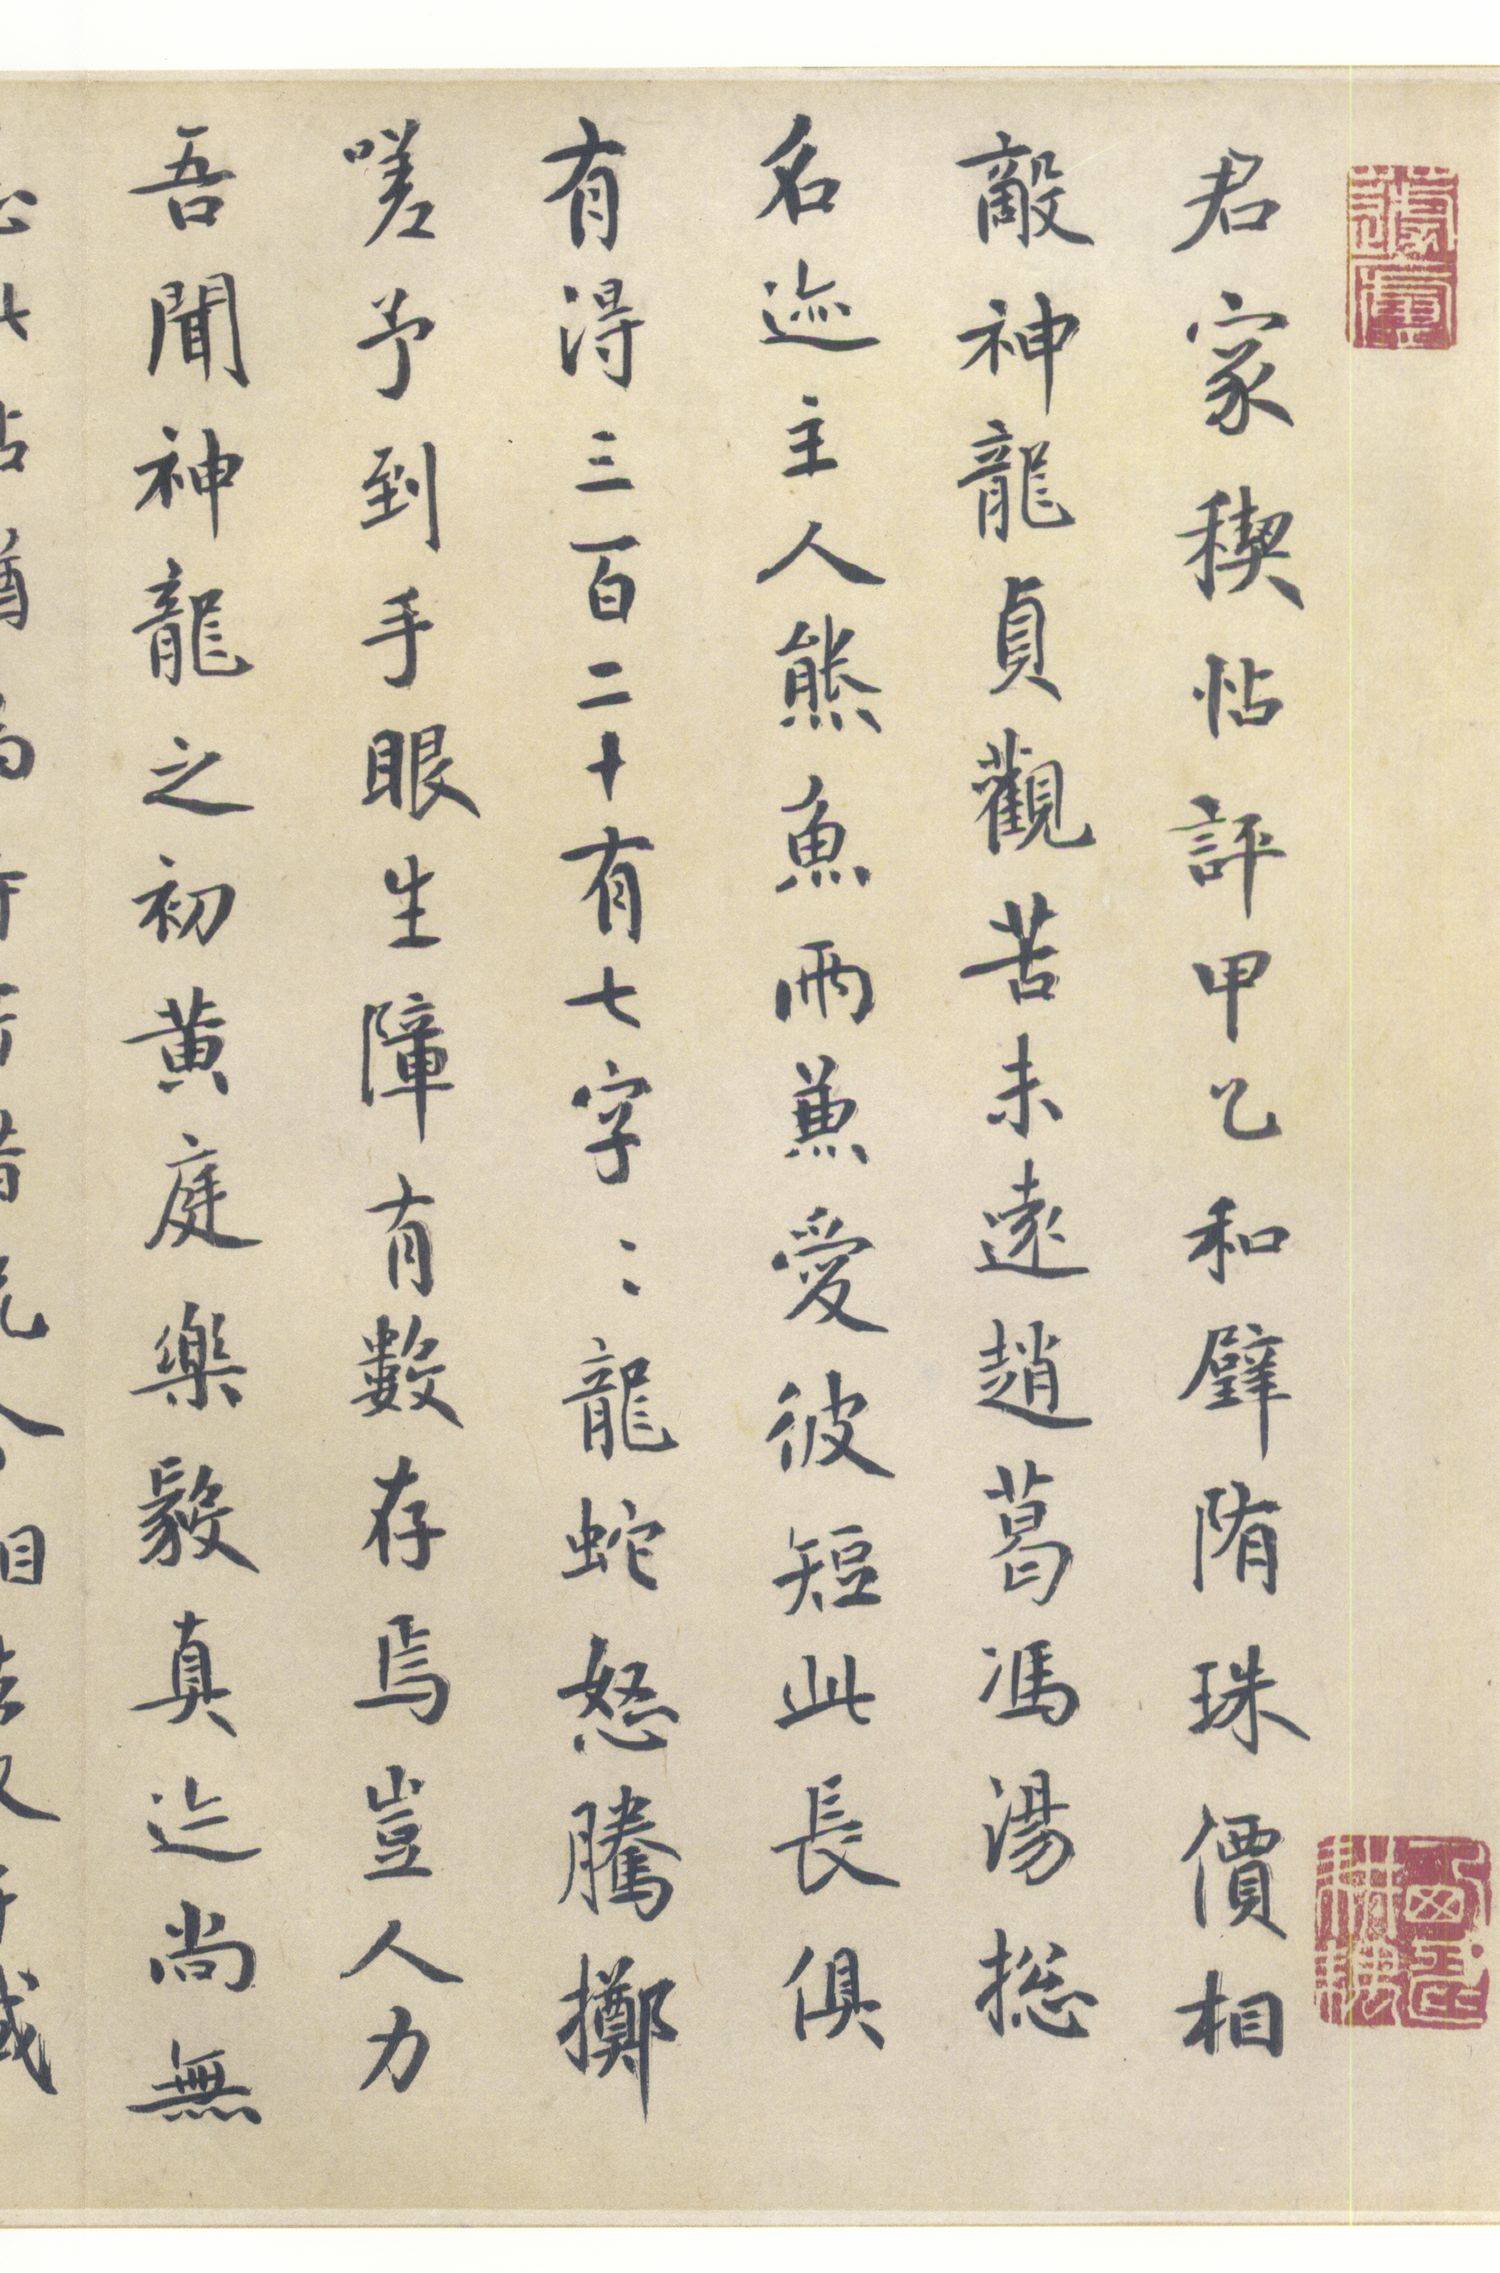 君家稧帖評甲乙和璧隋珠價相
敵神龍貞觀苦未遠趙葛馮湯摠
名迹主人熊魚兩兼愛彼短此長俱
有得三百二十有七字〻龍蛇怒騰擲
嗟予到手眼生障有數存焉豈人力
吾聞神龍之初黃庭樂毅真迹尚無